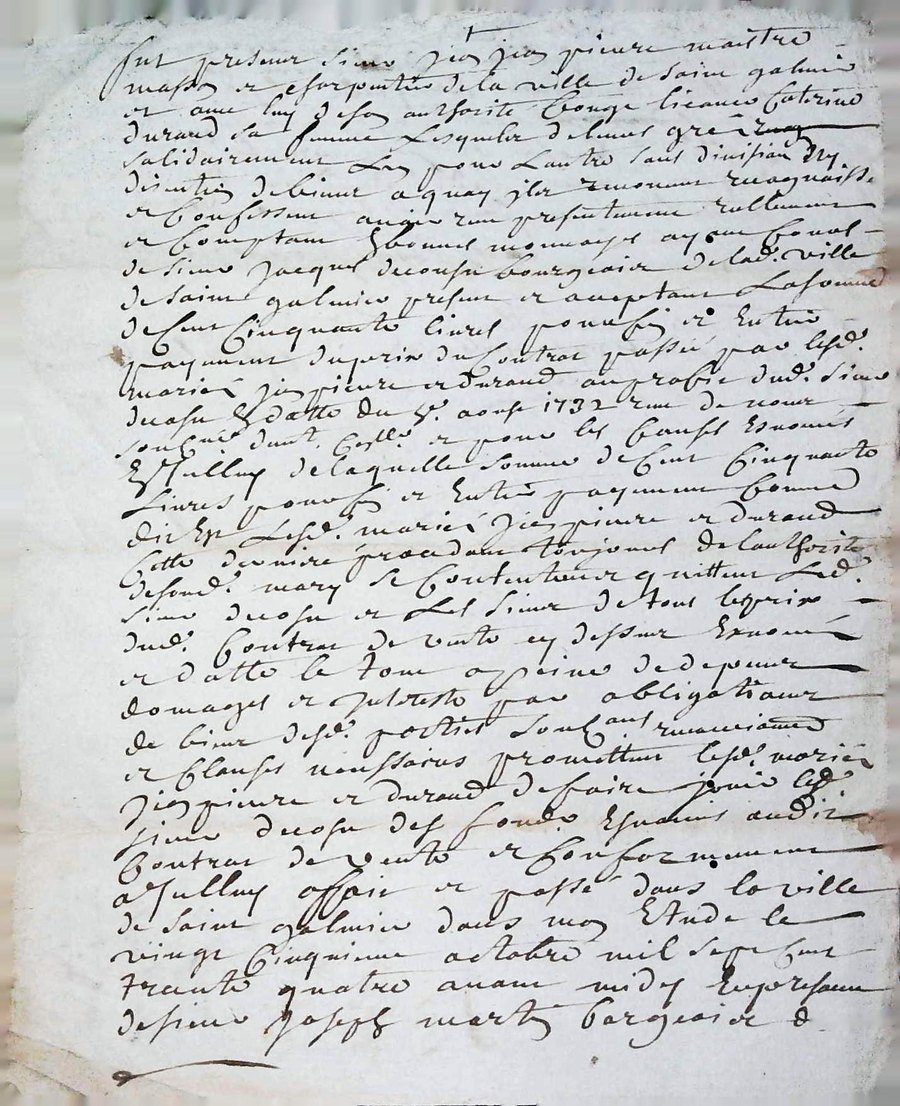 fut present sieur Jean pierre maistre
masson et charpentier de la ville de saint galmier
et avec luy de son authorité Conge licance Caterine
durand sa femme Lesquels de leurs gré
solidairement Lun pour Lautre sans division ny
discution de biens a quoy ils renoncent recognaisse
et Confessent avoir reçu presentement reellement
et Comptant En bonnes monnoyes ayant Cours
de sieur Jacques decosu bourgeois de lad. ville
de saint galmier present et acceptant La somme
de Cent Cinquante livres pour fin et Entier
payement du prix du Contrat passé par lesd.
mariés pierre et durand au profit dud. sieur
decosu En datte du aoust 1732 reçu de nous
et pour les Causes Enoncés
En Icelluy de laquelle somme de Cent Cinquante
Livres pour fin et Entier payement Comme
dit Est Lesd. mariés Jean pierre et durand
Cette derniere procedant toujours de lauthorité
de sond. mary se Contentent et quittent Led.
sieur decosu et Les siens de tout le prix
dud. Contrat de vente cy dessus Enoncé
et datté le tout a peine de depens
domages et Interests par obligations
de biens desd. parties renonciations
et Clauses necessaires promettent lesd. mariés
Jean pierre et durand de faire jouir led.
sieur decosu des fonds Enoncés audit
Contrat de vente et Conformement
a Icelluy ffait et passé dans la ville
de saint galmier dans mon Etude le
vingt Cinquieme octobre mil sept Cent
trante quatre avant midy En presence
de sieur Joseph martin borgeois d